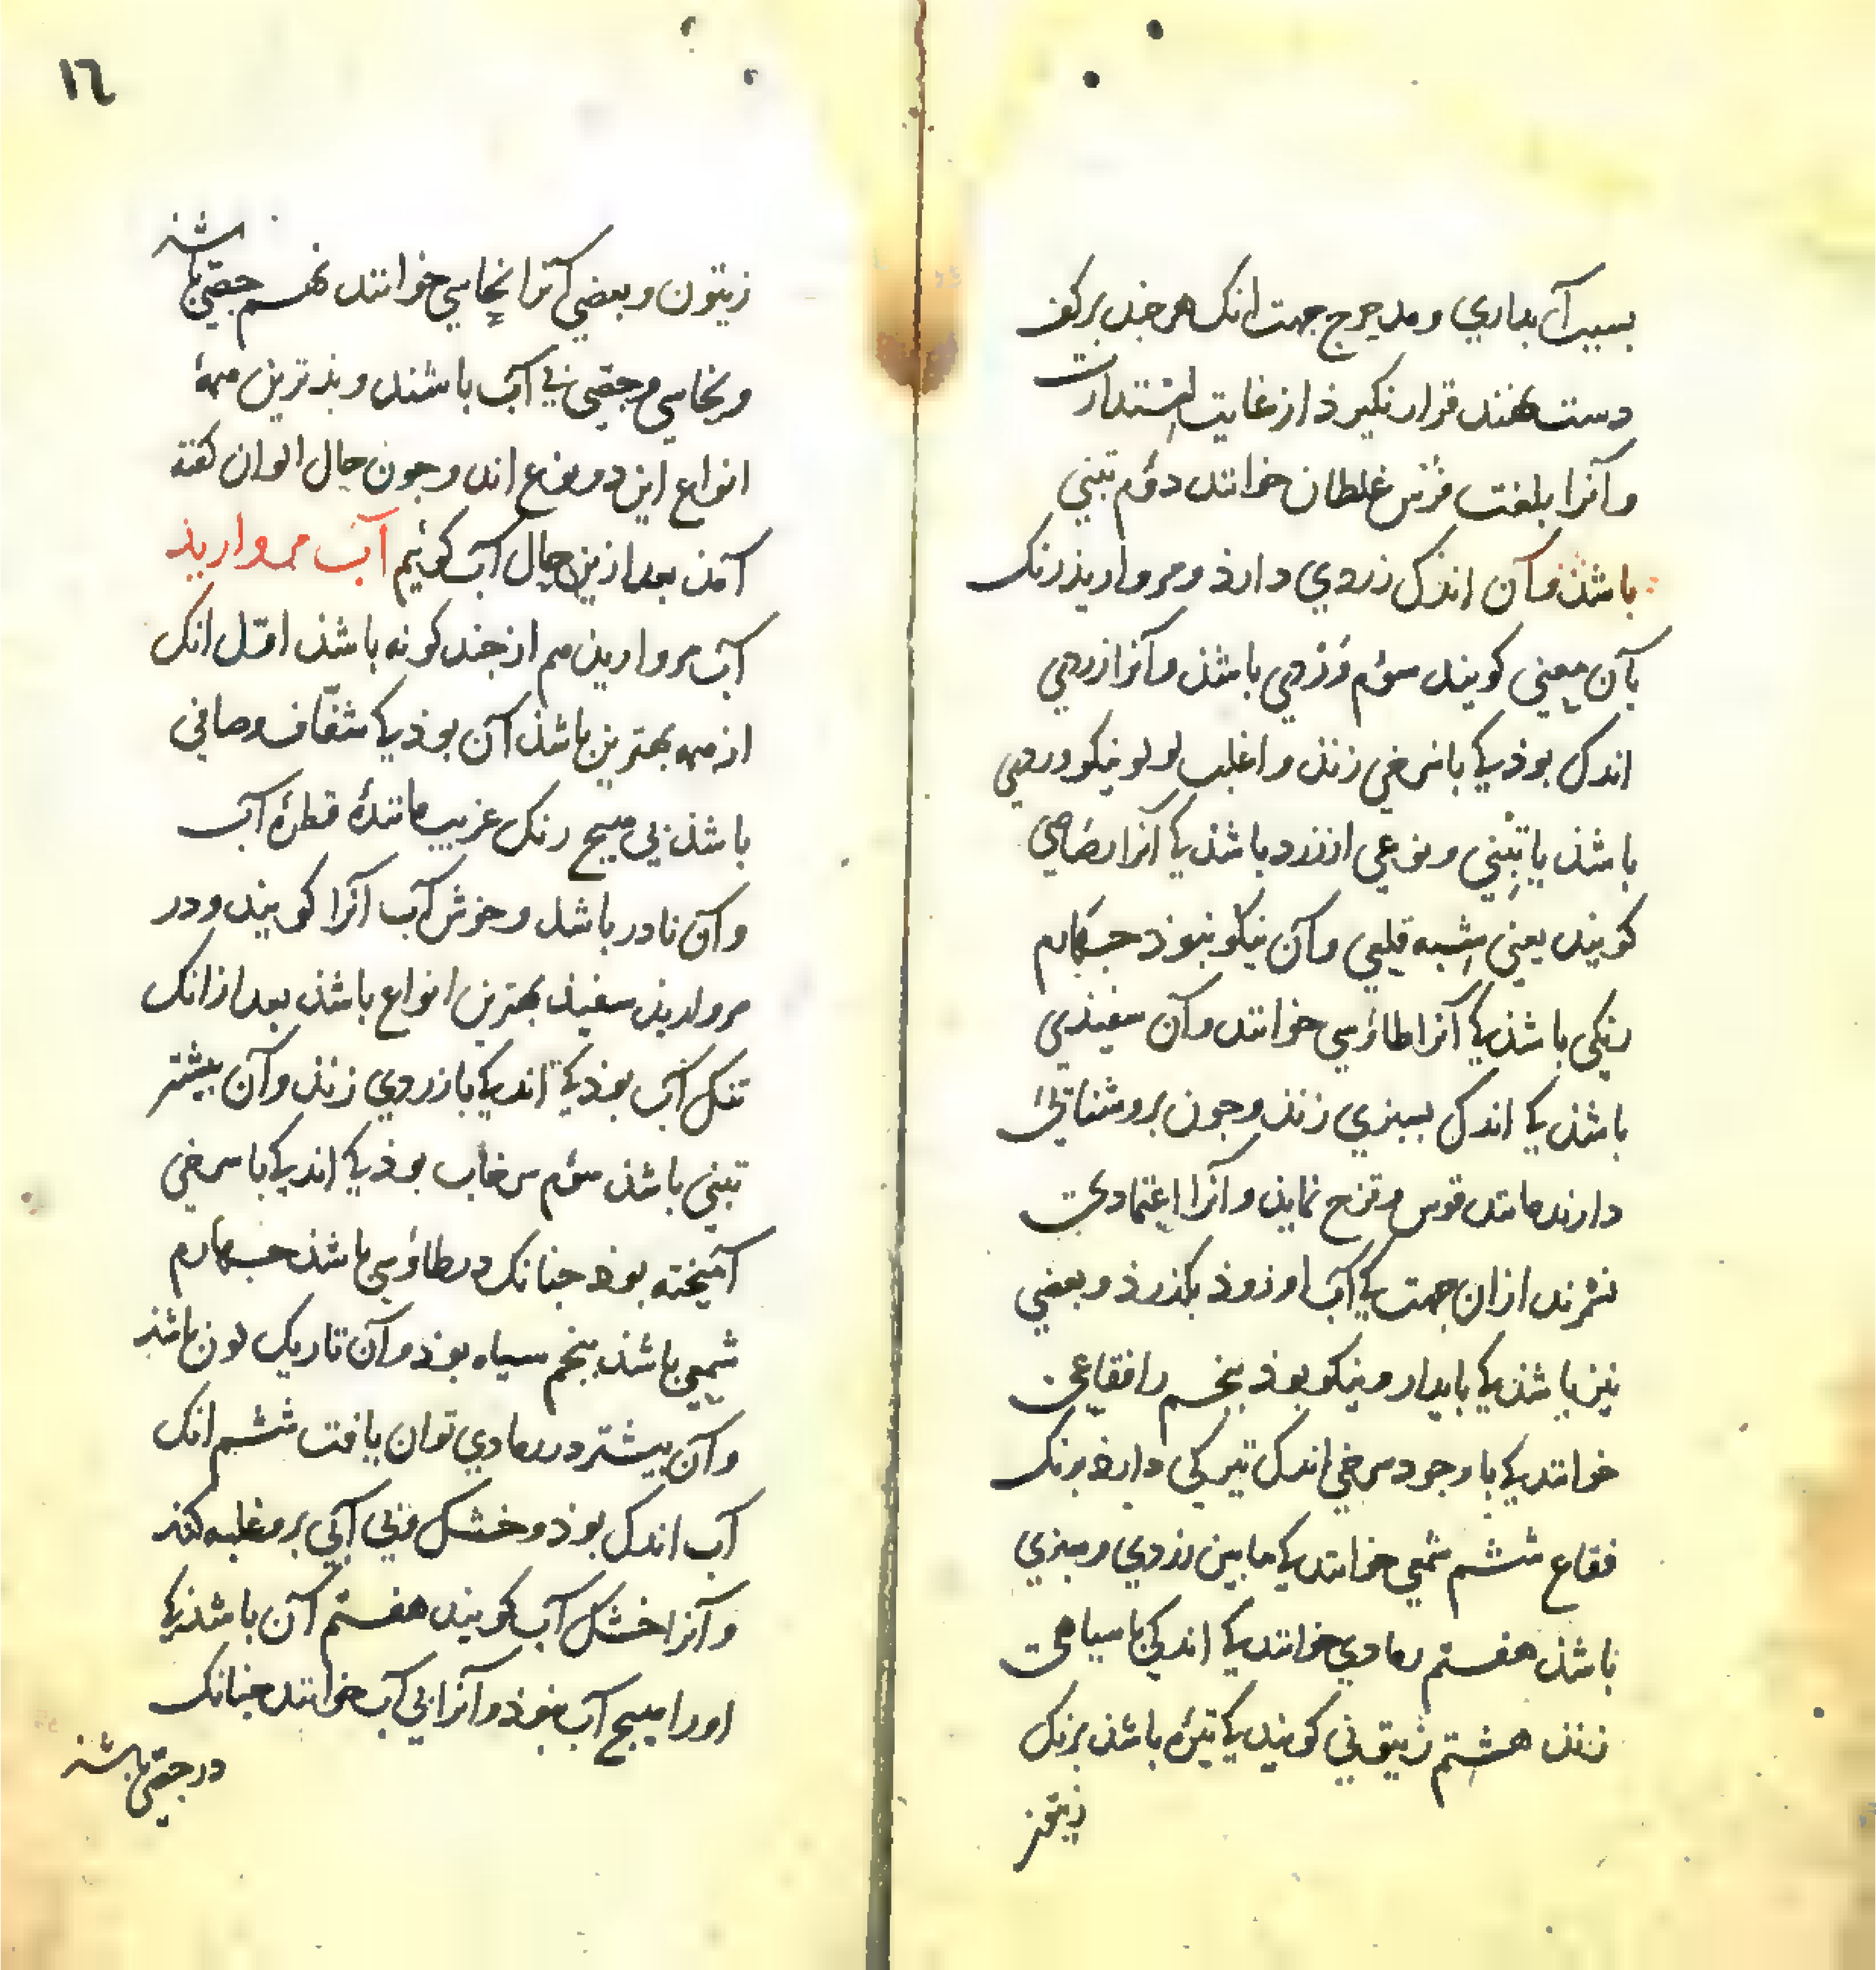 بسبب آبداري و مدحرج جهت انک هر جند بر کف
دست نهند قرار نکیرذ از غایت استدارت
و آنرا بلغت فرس غلطان خوانند دوم تبني
باشذ و آن اندک زردي دارذ و مرواریذ رنک
بآن معني کویند سوم وردي باشذ و آنرا زردي
اندک بوذ کي با سرخي زنذ و اغلب لولو نیکو وردي
باشذ یا تبني و نوعي از زرد باشذ کي آنرا رصاصي
کویند یعني شبه قلعي و آن نیکو نبوذ جهارم
رنکي باشذ کي آنرا طاؤسي خوانند و آن سفیذي
باشذ کي اندک بسبزي زنذ و جون بروشنائي
دارند مانند قوس و قزح نماید و آنرا اعتمادي
نشمرند از ان جهت کي آب او زوذ بکذرذ و بعضي
نیز باشذ کي بایدار و نیکو بوذ بنجم را فقاعي
خوانند کي با وجود سرخي اندک تیرکي دارذ برنک
فقاع ششم شمعي خوانند کي ما بین زردي و سبزي
باشذ هفتم رمادي خوانند کي اندکي با سیاهي
زنذ هشتم زیتوني کویند کي تیره باشذ برنک
زیتون
١٦
زیتون و بعضي آنرا نحاسي خوانند نهم جصّي باشذ
و نحاسي و جصّي بي آب باشند و بذترین همهٔ
انواع این دو نوع اند و جون حال الوان کفته
آمذ بعد از ین حال آب کوئیم آب مرواریذ
آب مرواریذ هم از جند کونه باشذ اوّل انک
از همه بهترین باشذ آن بوذ کي شفّاف و صافي
باشذ بي هیج رنک غریب مانندهٔ قطرهٔ آب
و آن نادر باشد و خوش آب آنرا کویند و در
مرواریذ سفیذ بهترین انواع باشذ بعد از انک
تنک آب بوذ کي اندکي با زردي زنذ و آن بیشتر
تبني باشذ سوم سرخاب بوذ کي اندکي با سرخي
آمیخته بوذ جنانک در طاؤسي باشذ جهارم
شمعي باشذ بنجم سیاه بوذ و آن تاریک لون باشذ
و آن بیشتر در رمادي توان یافت ششم انک
آب اندک بوذ و خشک و بي آبي برو غلبه کند
و آنرا خشک آب کویند هفتم آن باشذ کي
اورا هیج آب نبوذ و آنرا بي آب خوانند جنانک
در جصّي باشذ